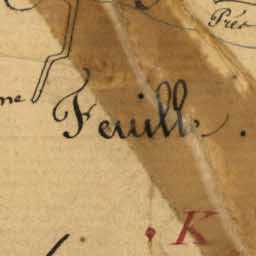 Prés
me
Feuille.
K